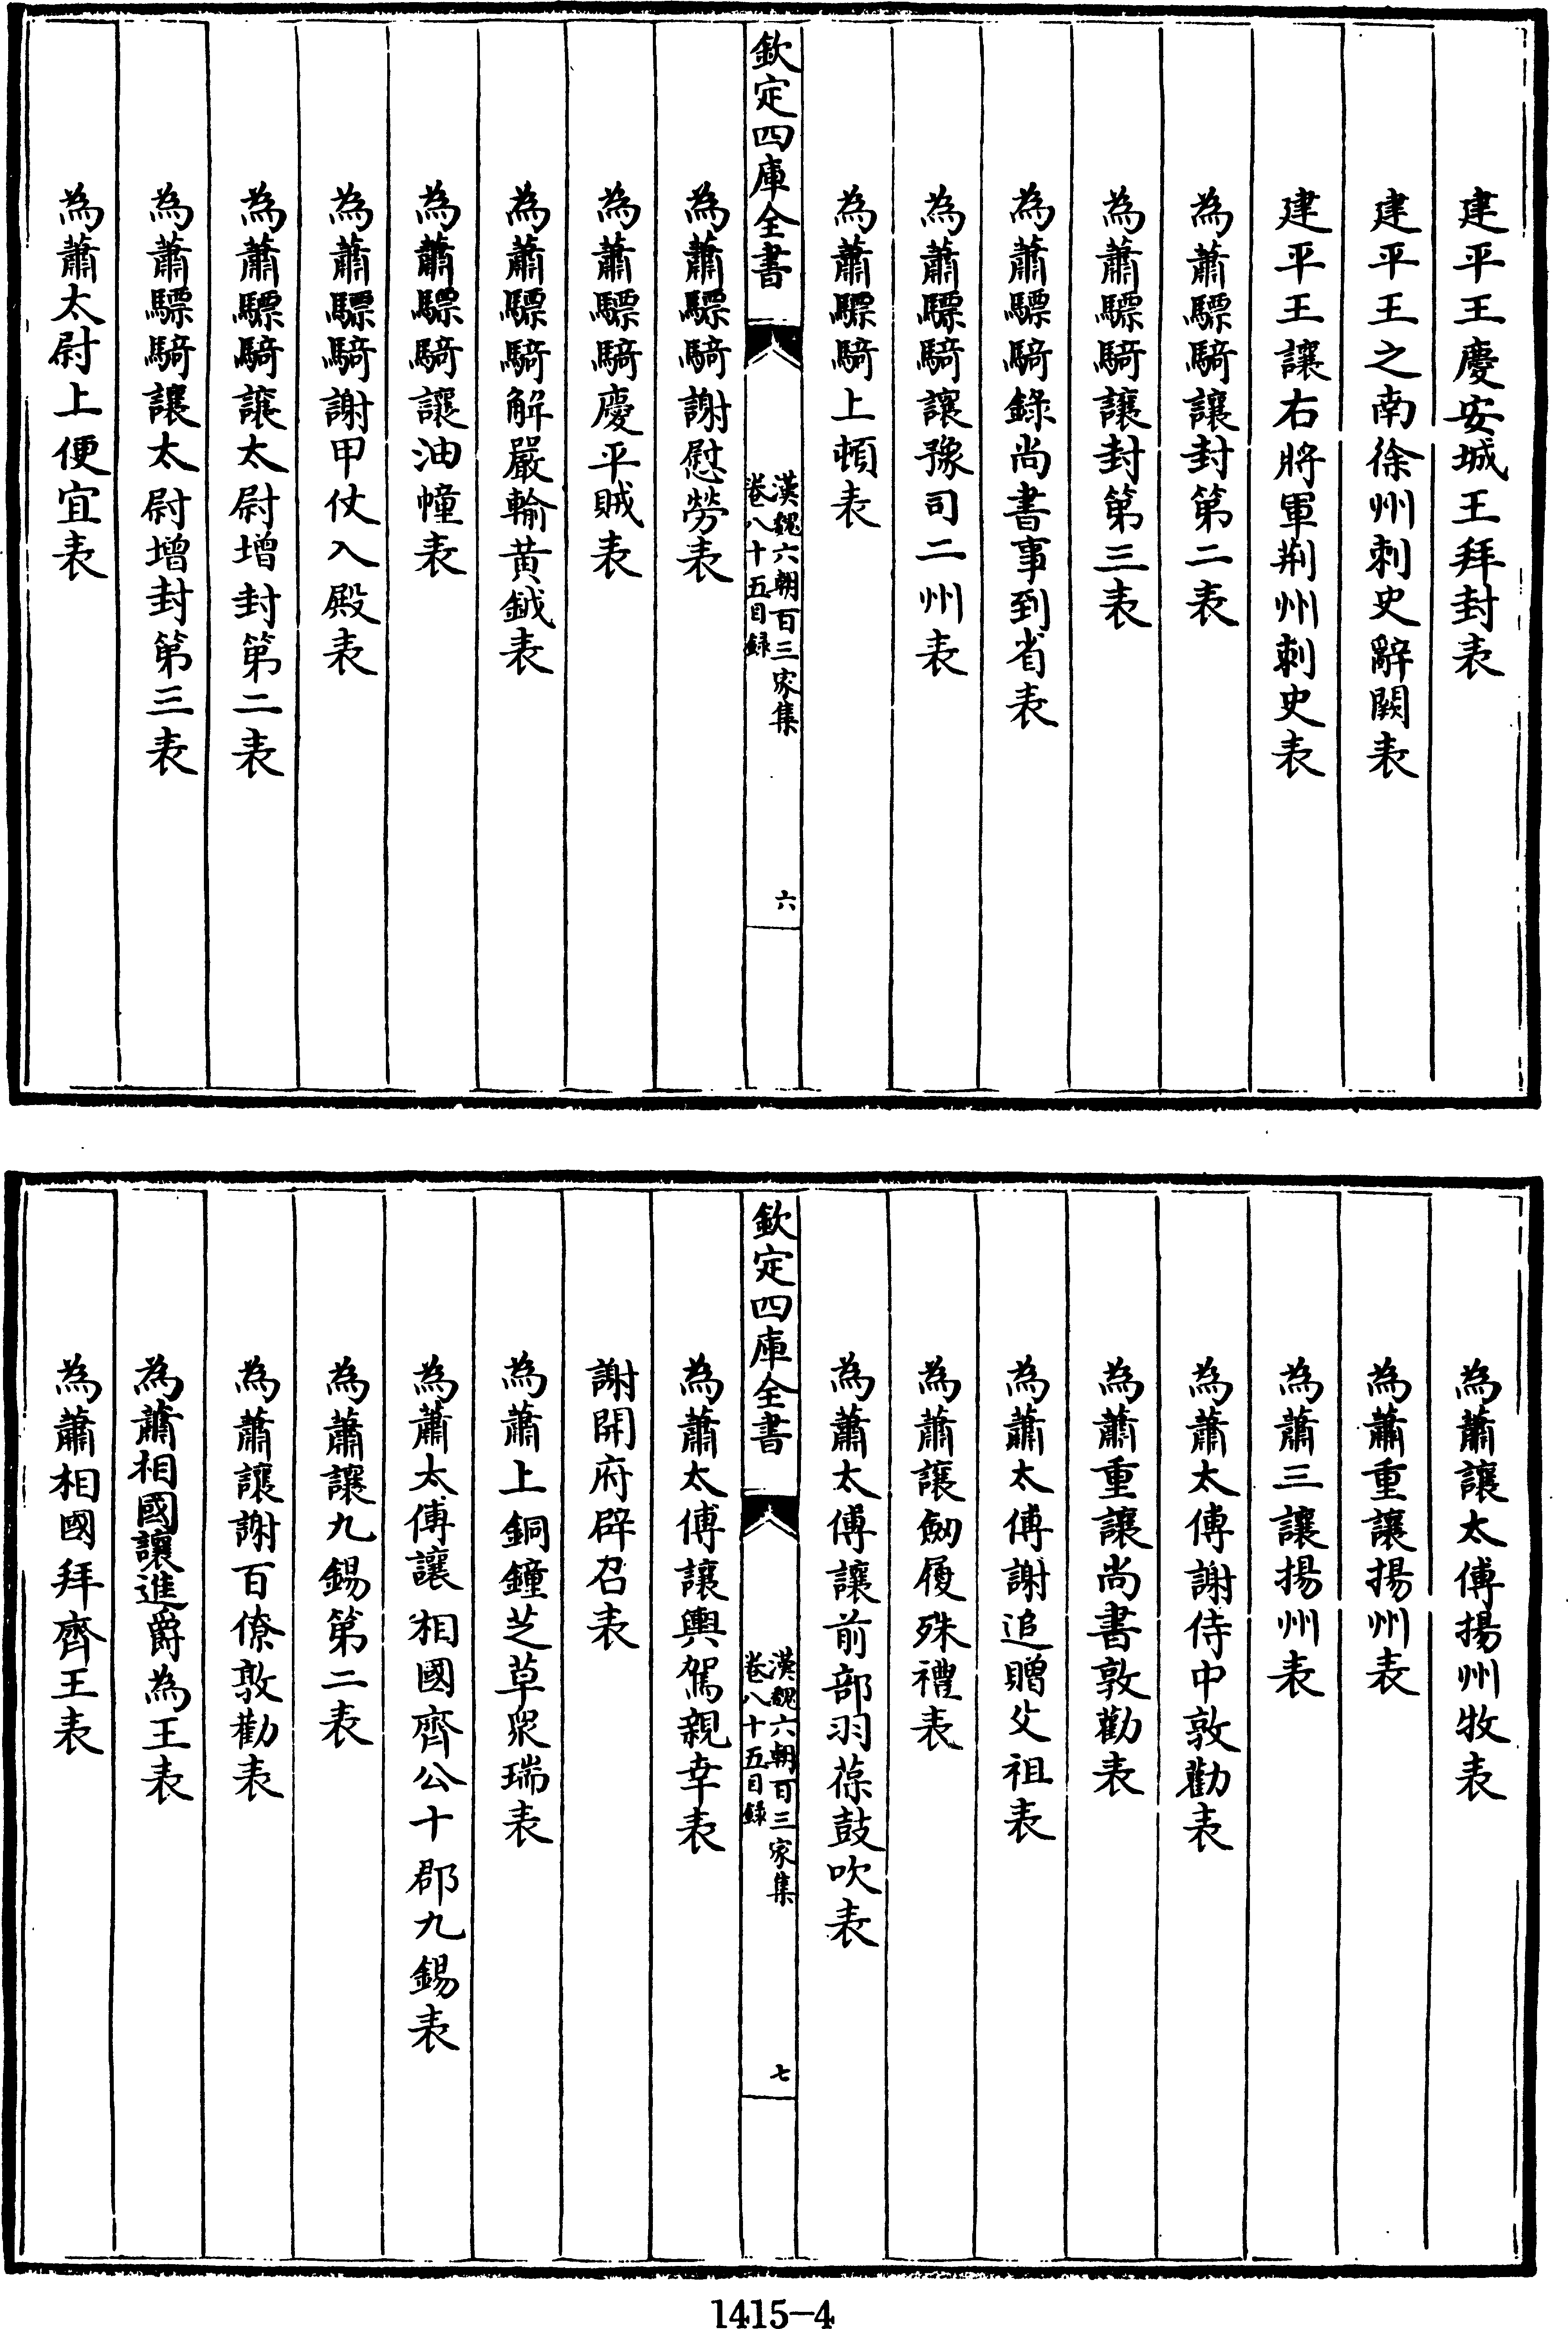 建平王慶安城王拜封表
建平王之南徐州刺史辭闕表
建平王讓右將軍荆州刺史表
為蕭驃騎讓封第二表
為蕭驃騎讓封第三表
為蕭驃騎錄尚書事到省表
為蕭驃騎讓豫司二州表
為蕭驃騎上頓表
欽定四庫全書
漢魏六朝百三家集
卷八十五目録
六
為蕭驃騎謝慰勞表
為蕭驃騎慶平賊表
為蕭驃騎解嚴輸黃鉞表
為蕭驃騎讓油幢表
為蕭驃騎謝甲仗入殿表
為蕭驃騎讓太尉增封第二表
為蕭驃騎讓太尉增封第三表
為蕭太尉上便宜表
為蕭讓太傅揚州牧表
為蕭重讓揚州表
為蕭三讓揚州表
為蕭太傅謝侍中敦勸表
為蕭重讓尚書敦勸表
為蕭太傅謝追贈父祖表
為蕭讓劒履殊禮表
為蕭太傅讓前部羽葆鼓吹表
欽定四庫全書
漢魏六朝百三家集
卷八十五目録
七
為蕭太傅讓輿駕親幸表
謝開府辟召表
為蕭上銅鐘芝草衆瑞表
為蕭太傅讓相國齊公十郡九錫表
為蕭讓九錫第二表
為蕭讓謝百僚敦勸表
為蕭相國讓進爵為王表
為蕭相國拜齊王表
1415-4